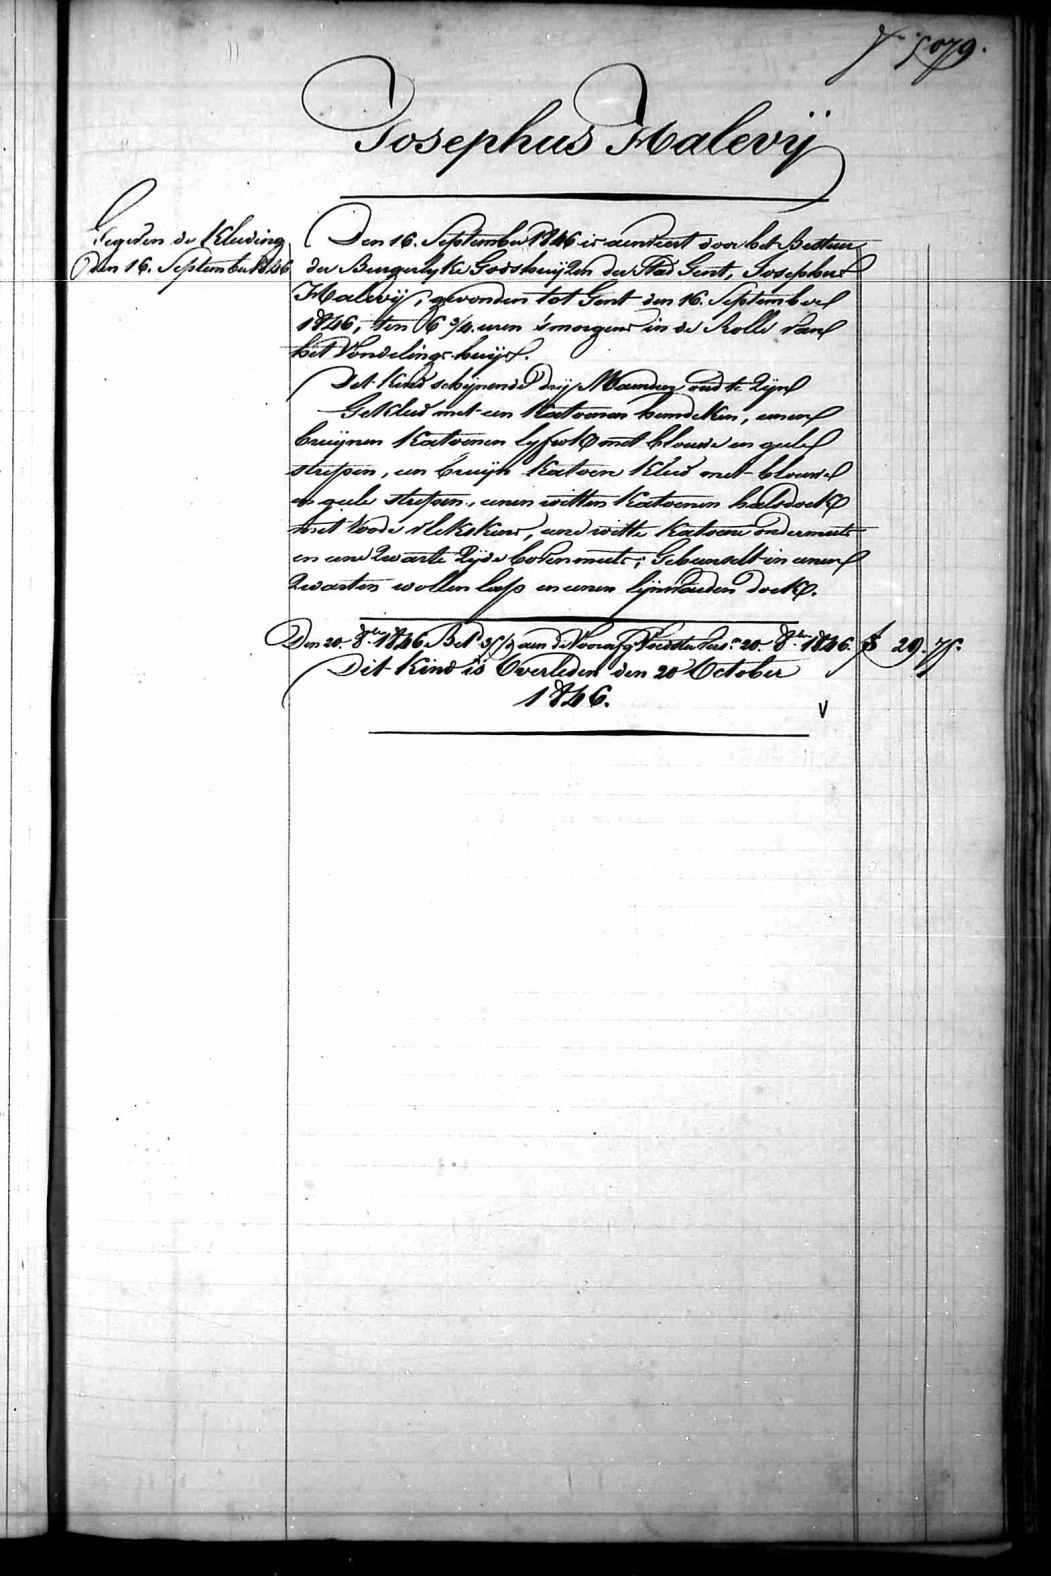 f.° 5079.
Josephus Halevÿ
Gegeven de Kleeding
den 16. September 1846
Den 16. September 1846 is aenveert door het Bestuur
der Burgerlyke Godshuyzen der Stad Gent, Josephus
Halevÿ, gevonden tot Gent den 16. September
1846, ten 6 3/4 uren 's morgens in de Rolle van
het Vondelings-huys.
Det Kind schynende dry Maenden oud te zyn
Gekleed met een Katoenen hemdeken, eenen
bruynen Katoenen lyfrok met blauwe en geele
strepen, een bruyn Katoen Kleed met blauwe
en geele strepen, eenen witten Katoenen halsdoek
met roode vlekskens, eene witte Katoene ondermuts
en eene zwarte zyde bovenmuts; Gebunselt in eenen
zwarten wollen lap en eenen lynwaeden doek.
Den 20. 8ber 1846. Bet. aen de Voedster 20. 8ber 1846. 29.75.
Dit Kind is Overleden den 20 October
1846.
V